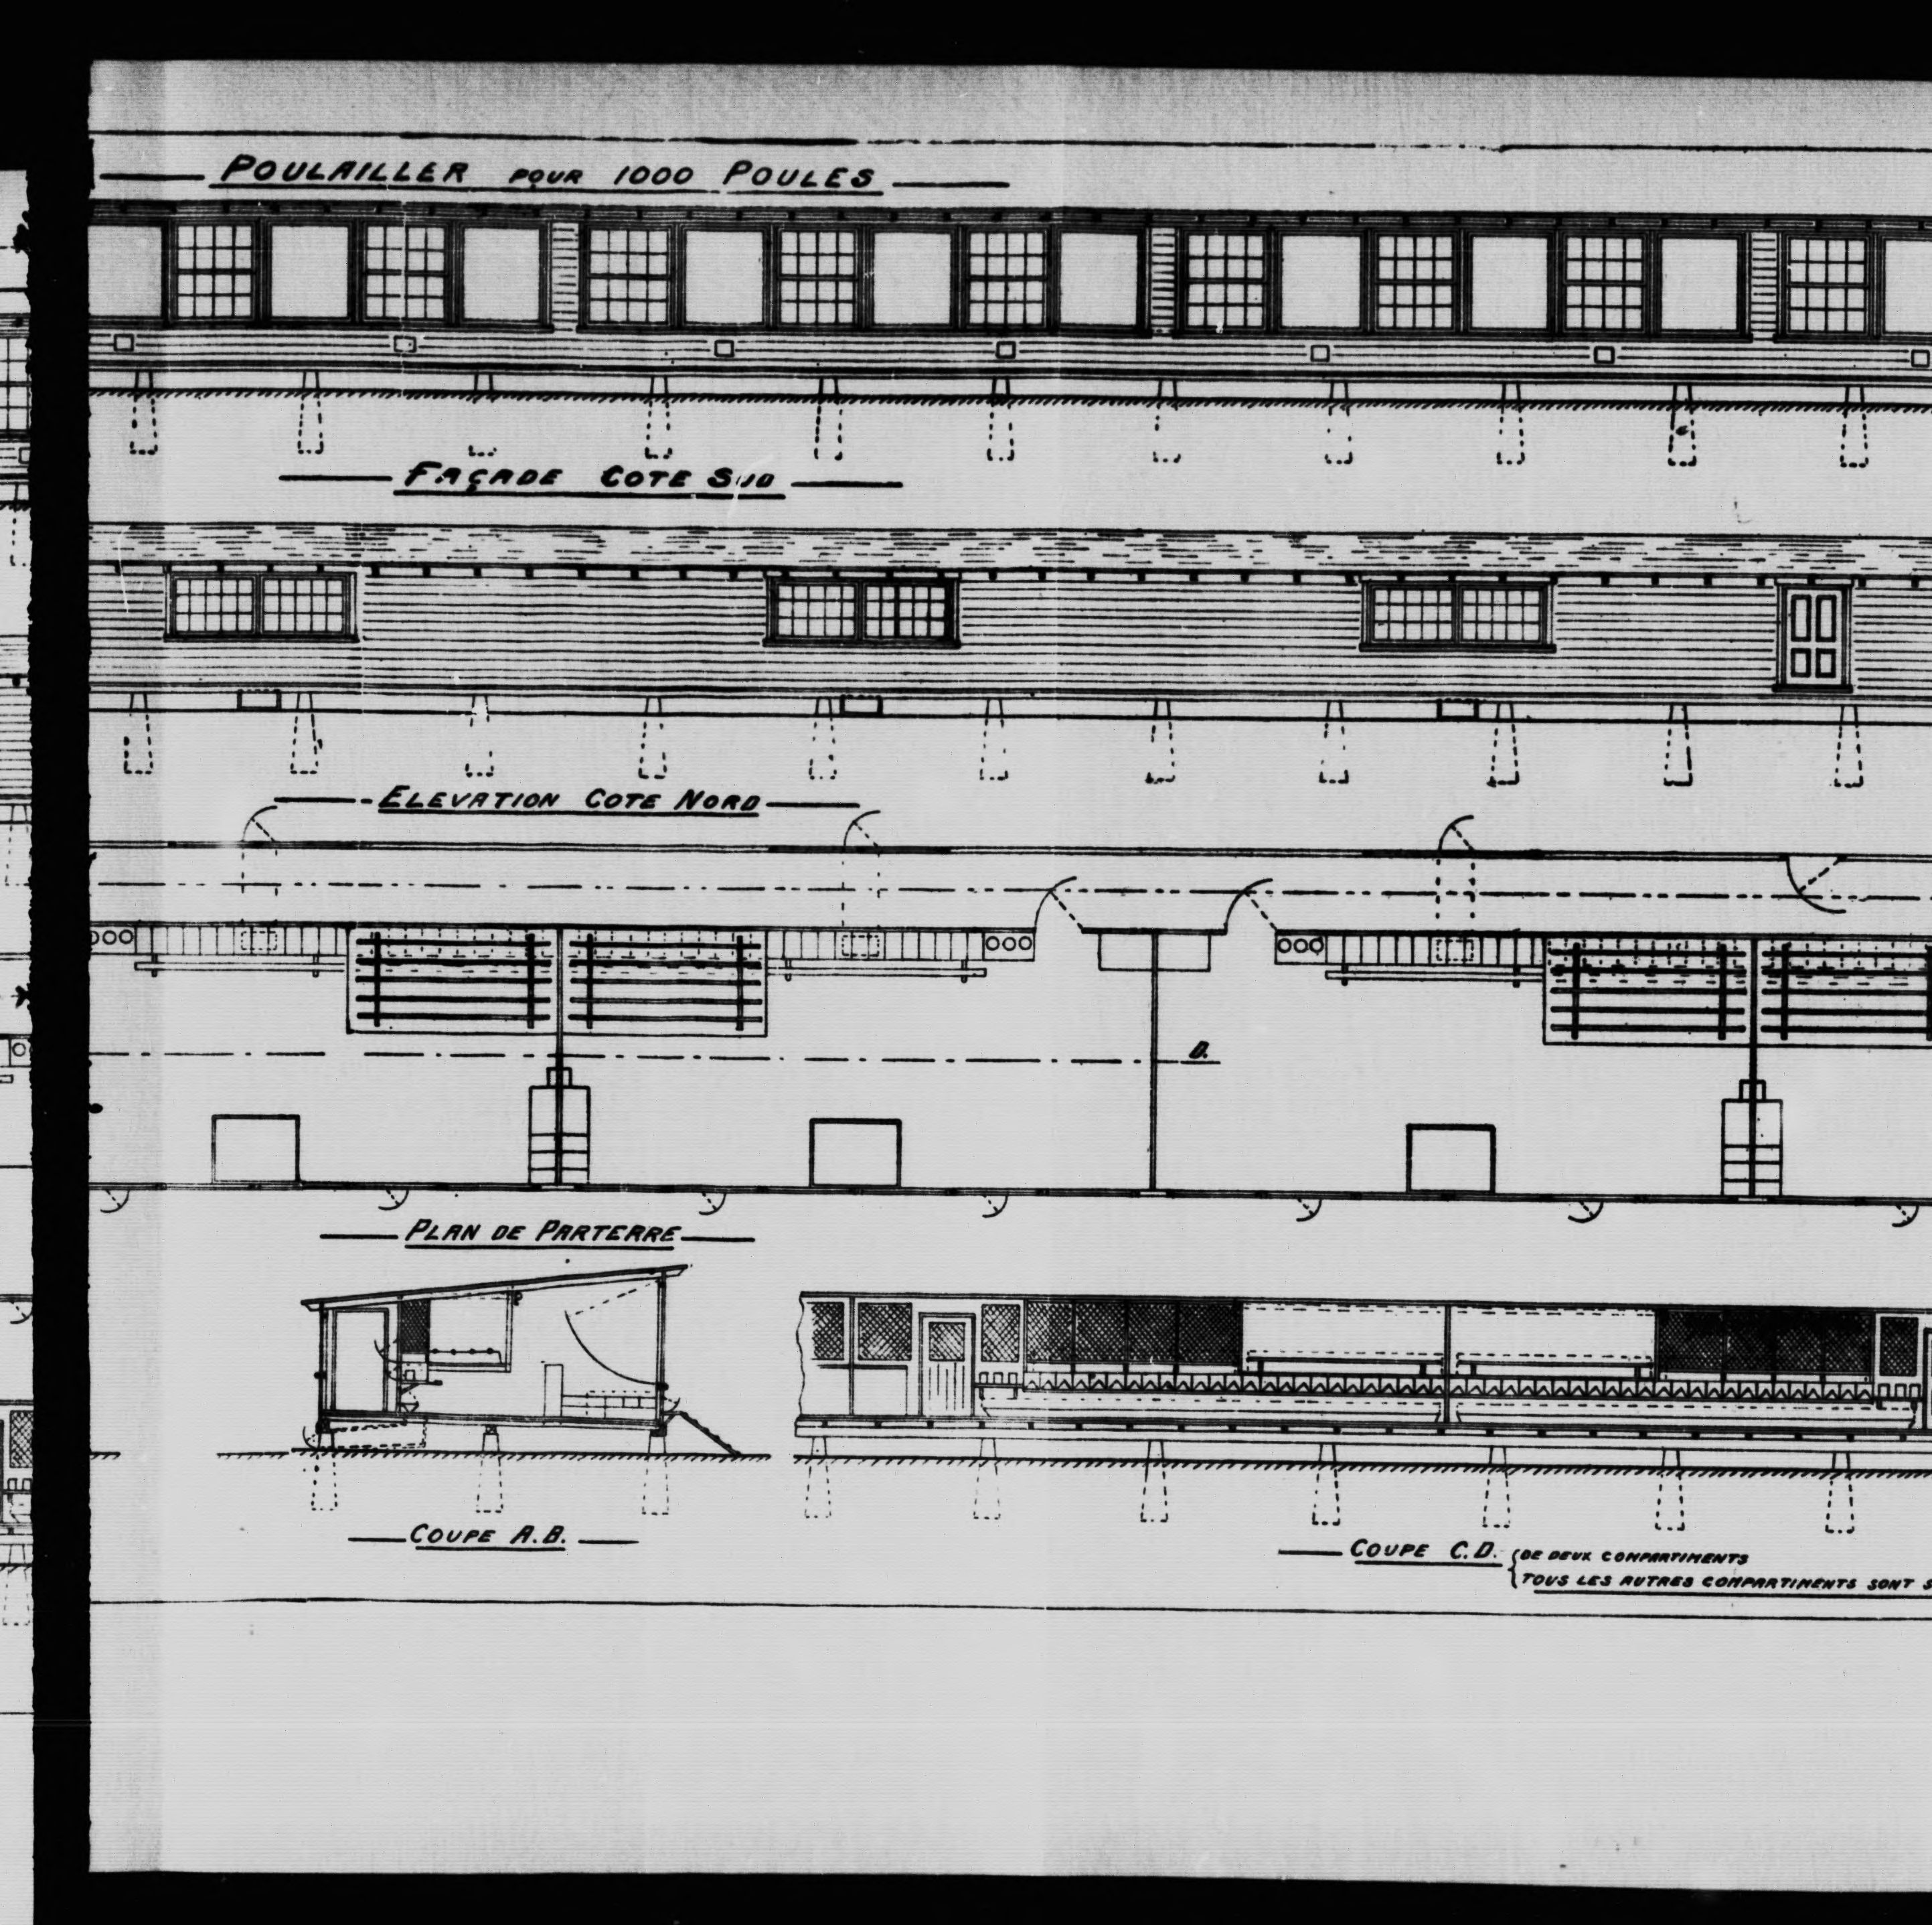 POULAILLER POUR 1000 POULES
FAÇADE COTE SUD
ELEVATION COTE NORD
D.
PLAN DE PARTERRE
COUPE A.B.
COUPE C.D. {DE DEUX COMPARTIMENTS
TOUS LES AUTRES COMPARTIMENTS SONT S